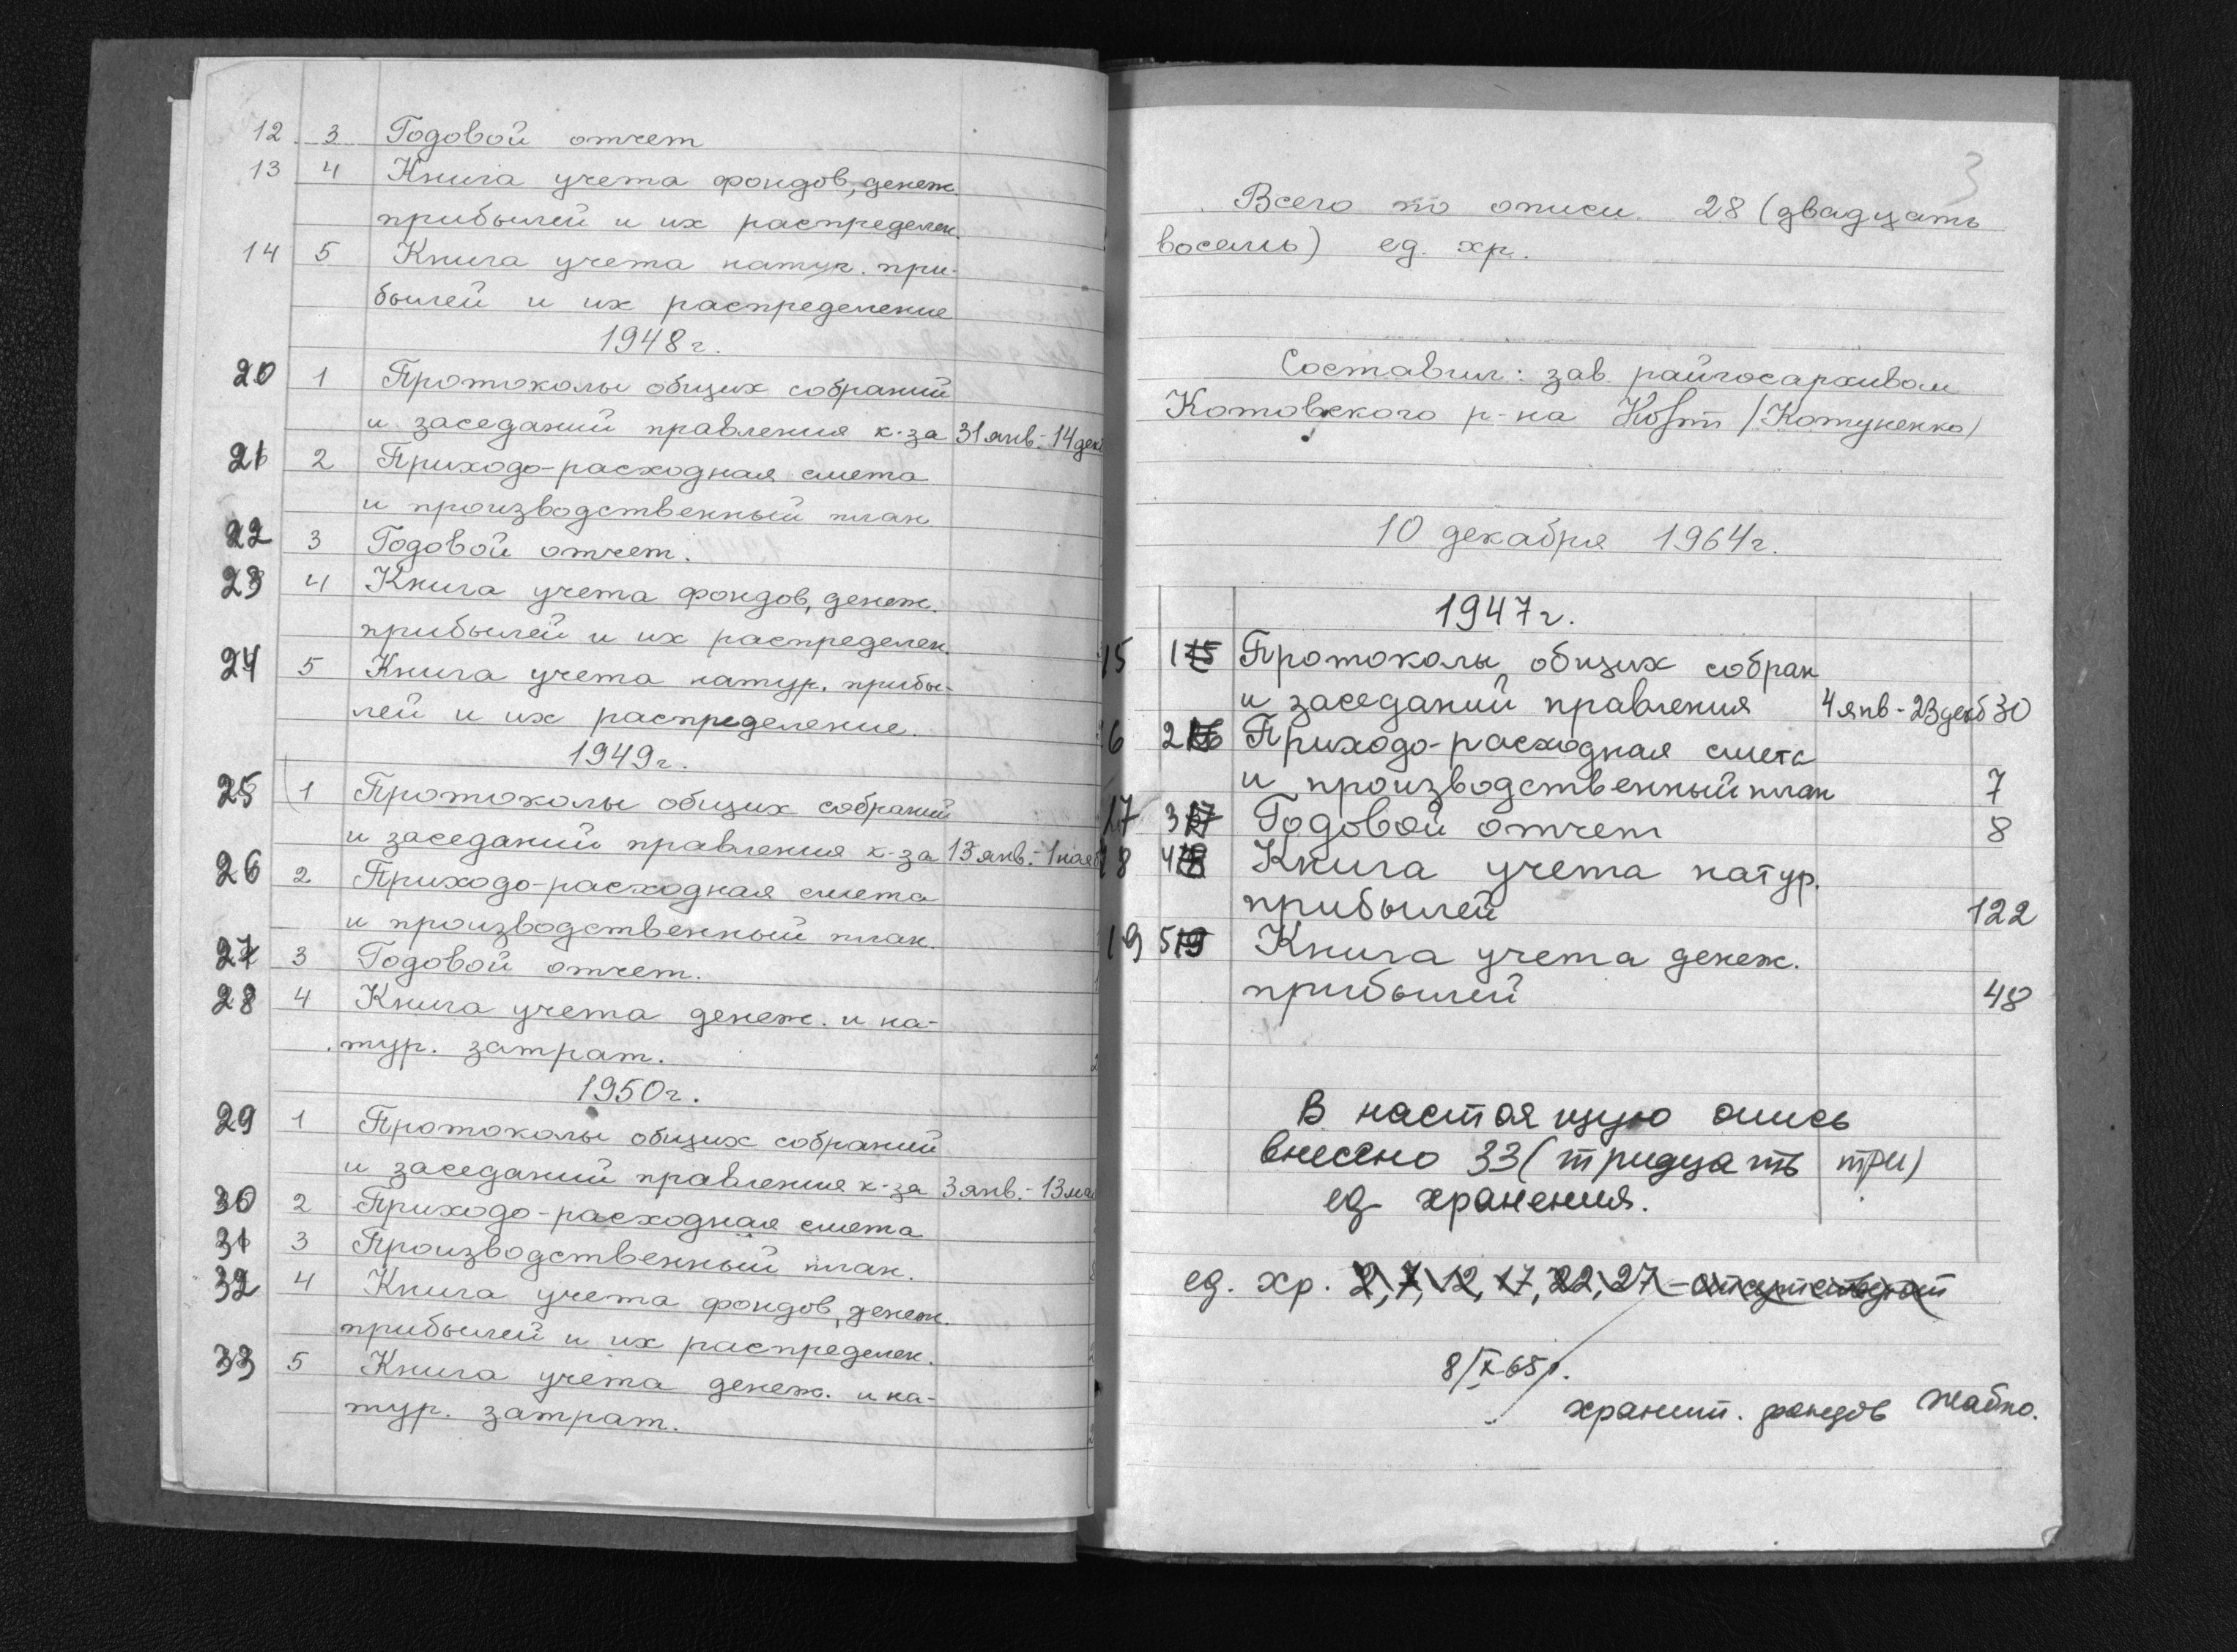 12 3 Годовой отчет
13 4 Книга учета фондов, денеж.
прибылей и их распределен.
14 5 Книга учета натур. при-
былей и их распределение
1948 г.
20 1 Протоколы общих собраний
и заседаний правления к-за 31 янв. - 14 дек
21 2 Приходо-расходная смета
и производственный план
22 3 Годовой отчет.
23 4 Книга учета фондов, денеж.
прибылей и их распределен.
24 5 Книга учета натур. прибы-
лей и их распределение.
1949 г.
25 1 Протоколы общих собраний
и заседаний правления к-за 13 янв. - 1 нояб
26 2 Приходо-расходная смета
и производственный план.
27 3 Годовой отчет.
28 4 Книга учета денеж. и на-
тур. затрат.
1950 г.
29 1 Протоколы общих собраний
и заседаний правления к-за 3 янв. - 13
30 2 Приходо-расходная смета
31 3 Производственный план.
32 4 Книга учета фондов, денеж.
прибылей и их распределен.
33 5 Книга учета денеж. и на-
тур. затрат.
3
Всего по описи 28 (двадцать
восемь) ед. хр.
Составил: зав. райгосархивом
Котовского р-на /Котуненко/
10 декабря 1964 г.
1947 г.
15 1 15 Протоколы общих собран
и заседаний правления 4 янв - 23 декб 30
16 2 16 Приходо-расходная смета
и производственный план 7
17 3 17 Годовой отчет 8
18 4 18 Книга учета натур.
прибылей 122
19 5 19 Книга учета денеж.
прибылей 48
В настоящую опись
внесено 33 (тридцать три)
ед. хранения.
ед. хр. 2, 7, 12, 17, 22, 27 - отсутствуют
8/X-65 г.
хранит. фондов